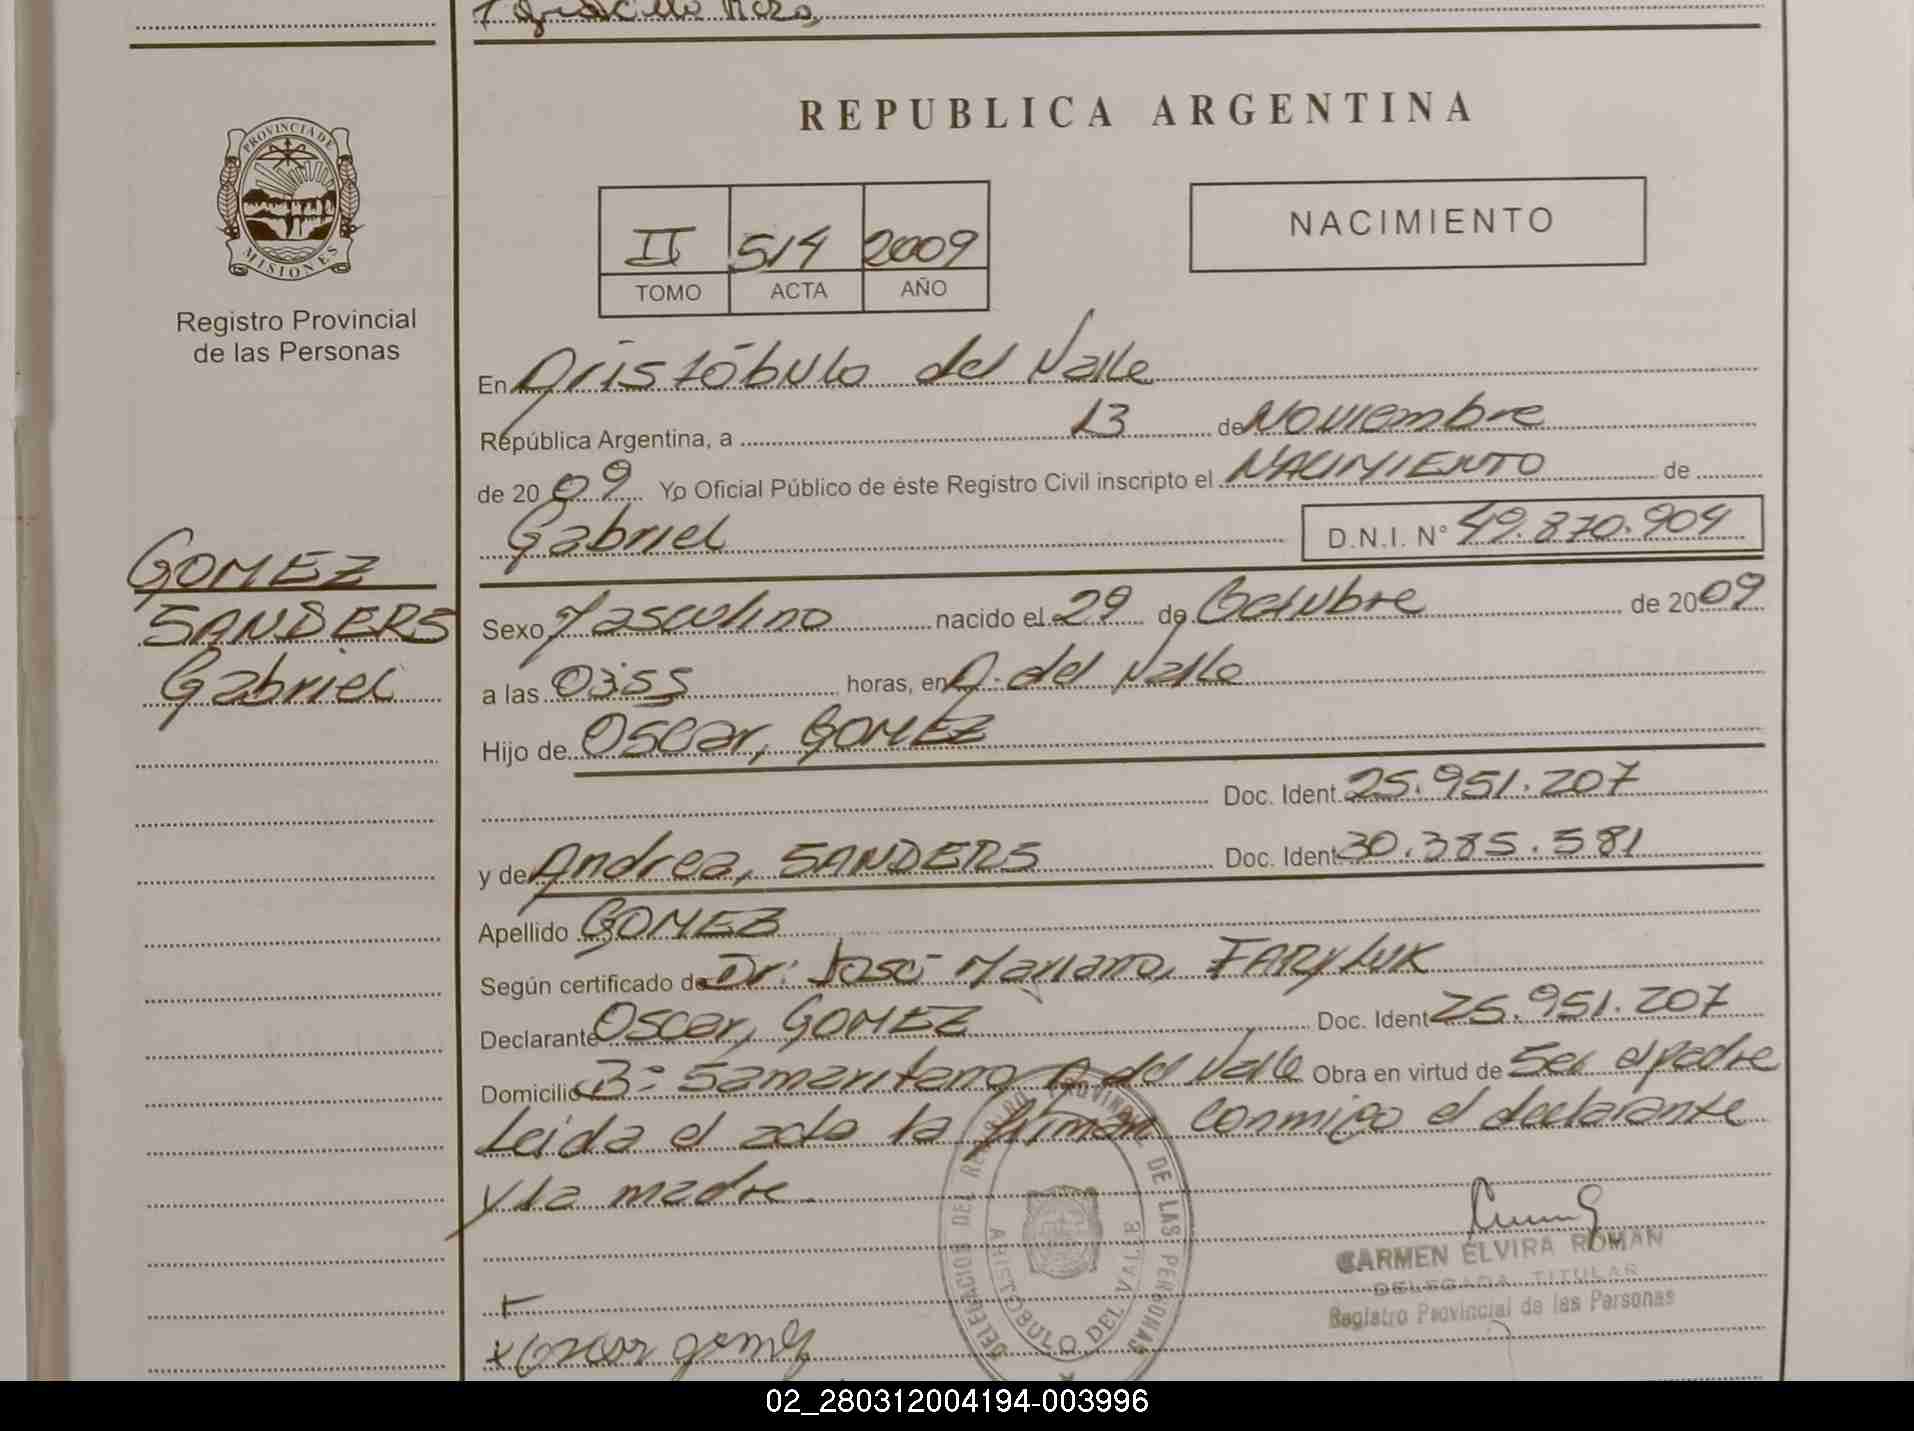 PROVINCIA DE
MISIONES
Registro Provincial
de las Personas
GOMEZ
SANDERS
Gabriel
REPUBLICA ARGENTINA
II 514 2009
TOMO ACTA AÑO
NACIMIENTO
En Aristóbulo del Valle
República Argentina, a 13 de Noviembre
de 20 09 Yo Oficial Público de éste Registro Civil inscripto el NACIMIENTO de
Gabriel D.N.I. N° 49.870.904
Sexo Masculino nacido el 29 de Octubre de 20 09
a las 03:55 horas, en A. del Valle
Hijo de Oscar, GOMEZ
Doc. Ident. 25.951.207
y de Andrea, SANDERS Doc. Ident. 30.385.581
Apellido GOMEZ
Según certificado de Dr: José Mariano,
Declarante Oscar, GOMEZ Doc. Ident. 25.951.207
Domicilio B° Samaritano A del Valle Obra en virtud de Ser el padre
Leida el acta la firman conmigo el declarante
y la madre.
DELEGACION DEL REGISTRO PROVINCIAL DE LAS PERSONAS
ARISTOBULO DEL VALLE
CARMEN ELVIRA ROMAN
DELEGADA TITULAR
Registro Provincial de las Personas
x Oscar gomez
02_280312004194-003996